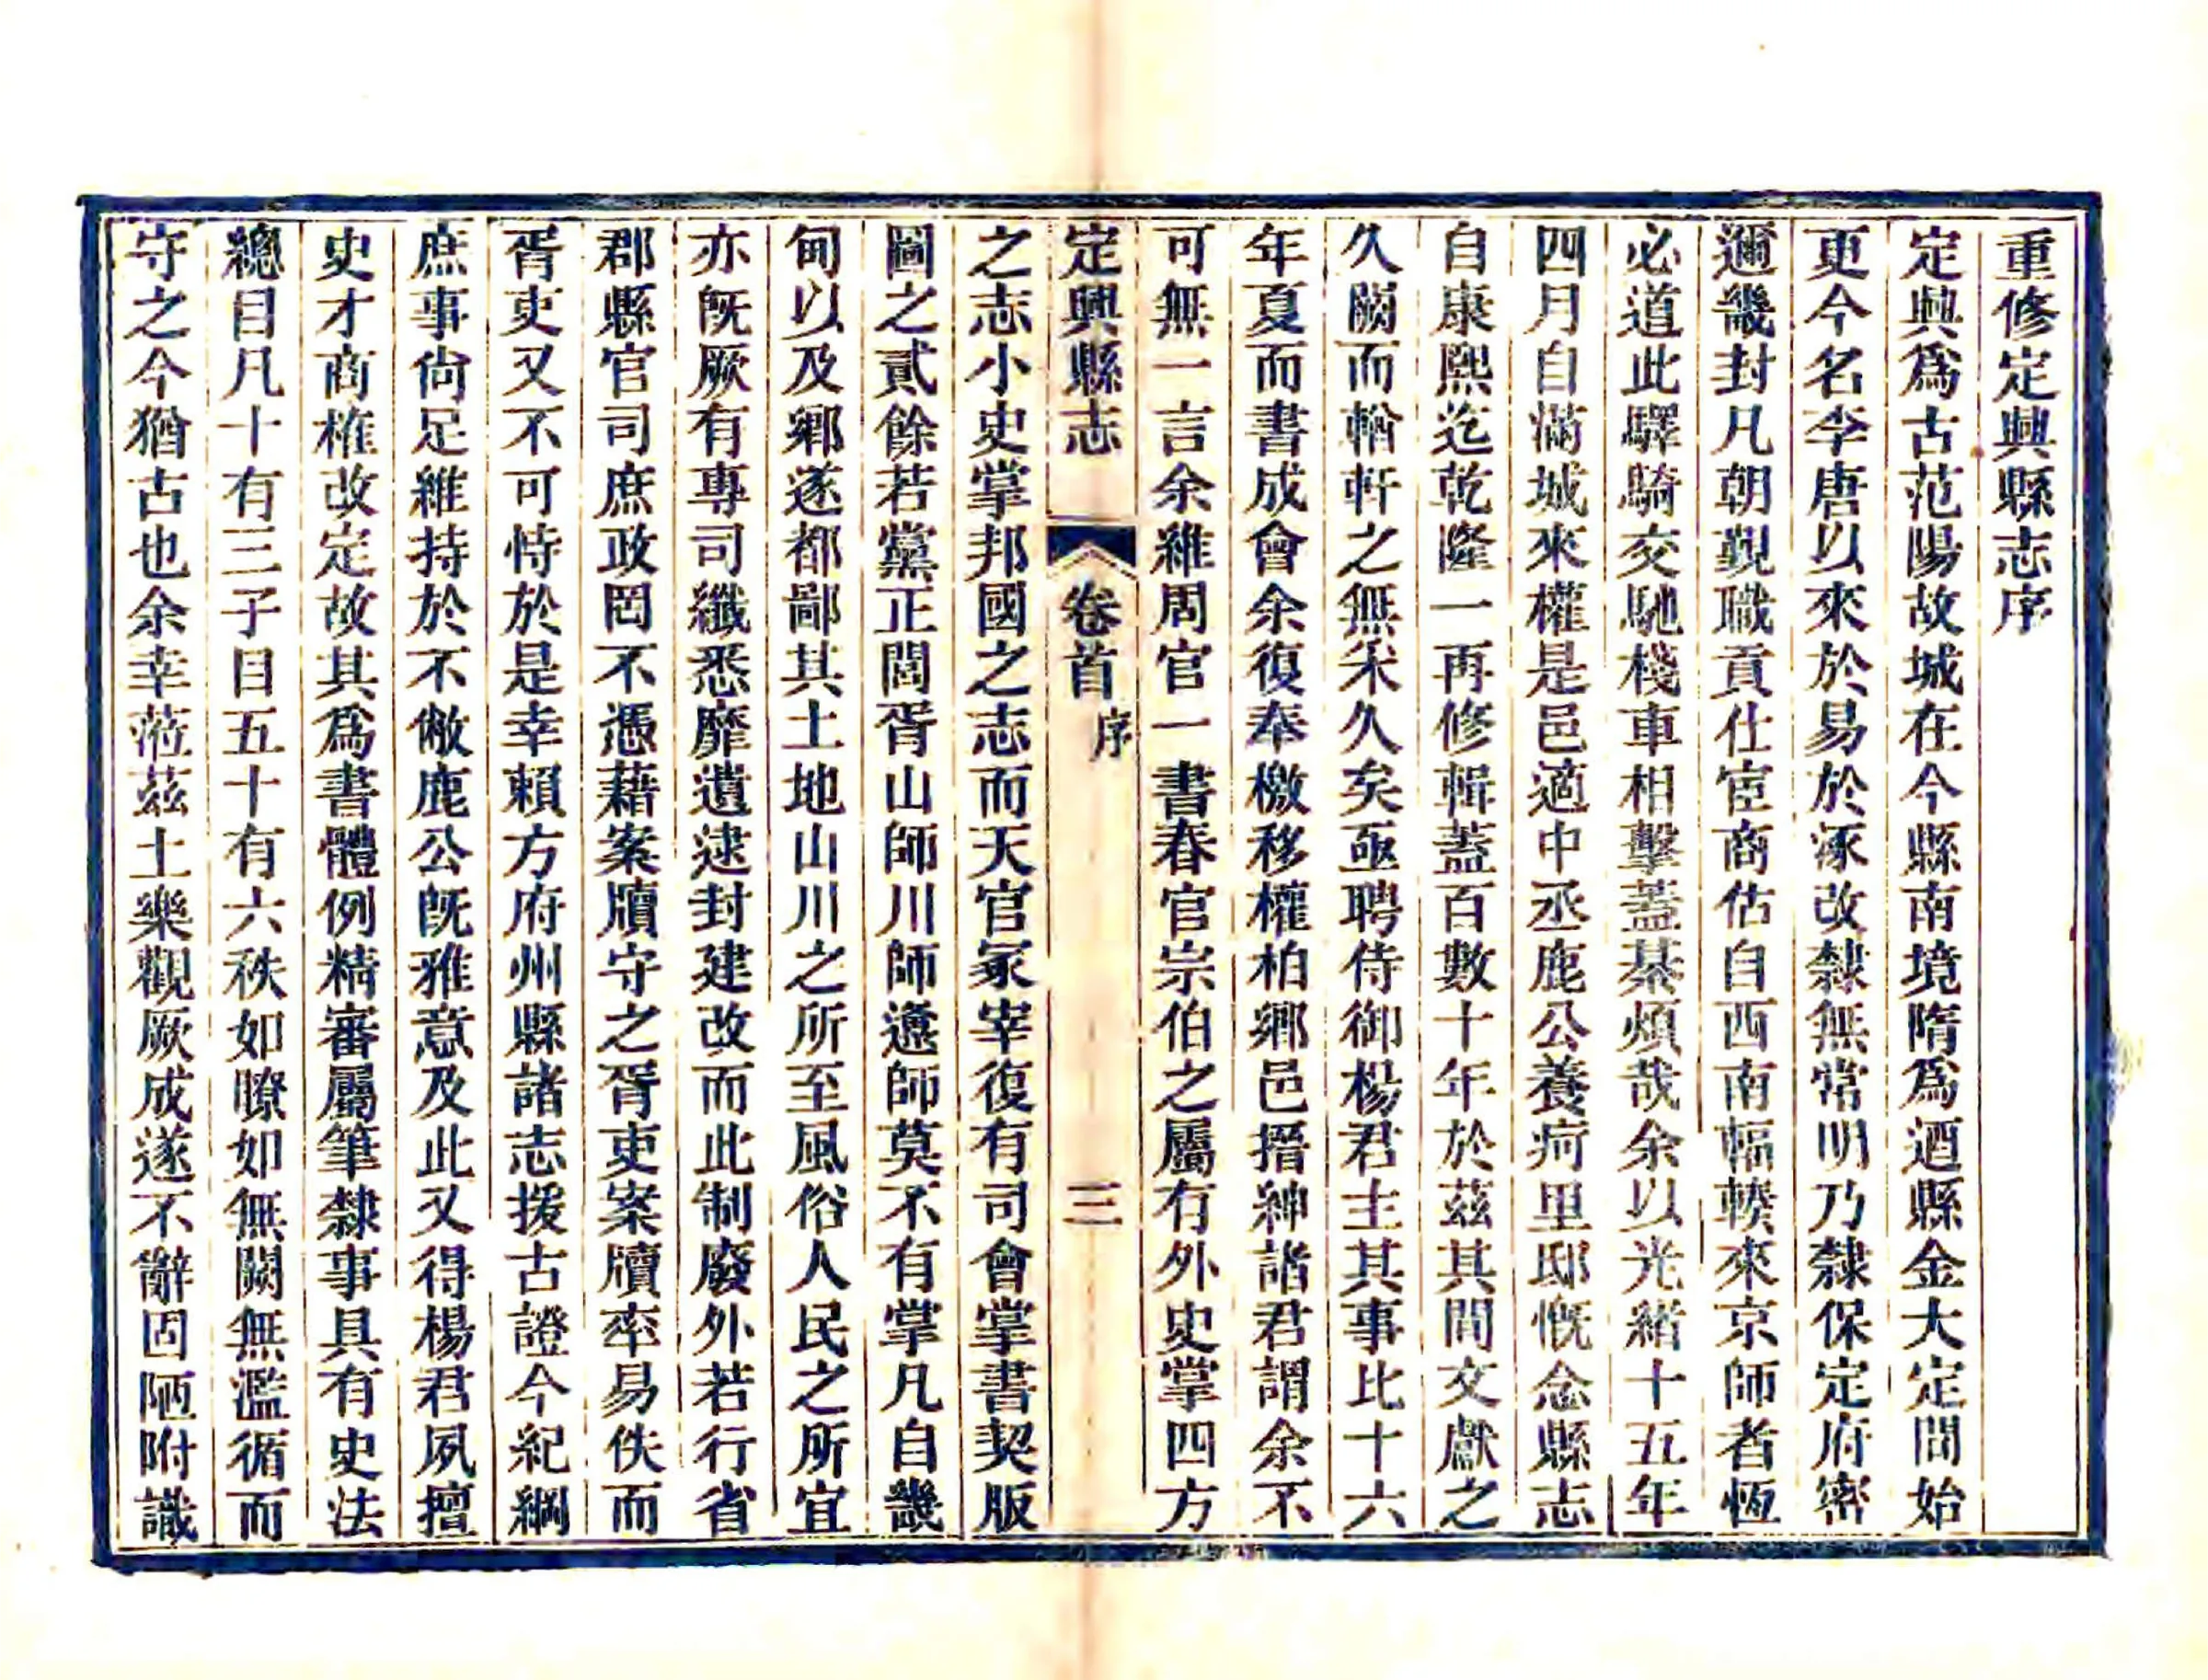 重修定興縣志序
定興爲古范陽故城在今縣南境隋爲遒縣金大定間始
更今名李唐以來於易於涿改隸無常明乃隸保定府密
邇畿封凡朝覲職貢仕宦商估自西南輻輳來京師者恆
必道此驛騎交馳棧車相擊蓋綦煩哉余以光緒十五年
四月自滿城來權是邑適中丞鹿公養疴里邸慨念縣志
自康熙迄乾隆一再修輯蓋百數十年於茲其間文獻之
久闕而輶軒之無采久矣亟聘侍御楊君主其事比十六
年夏而書成會余復奉檄移權柏鄉邑搢紳諸君謂余不
可無一言余維周官一書春官宗伯之屬有外史掌四方
定興縣志 卷首 序 三
之志小史掌邦國之志而天官冢宰復有司會掌書契版
圖之貳餘若黨正閭胥山師川師邍師莫不有掌凡自畿
甸以及鄉遂都鄙其土地山川之所至風俗人民之所宜
亦旣厥有專司纖悉靡遺逮封建改而此制廢外若行省
郡縣官司庶政罔不憑藉案牘守之胥吏案牘率易佚而
胥吏又不可恃於是幸賴方府州縣諸志援古證今紀綱
庶事尙足維持於不敝鹿公旣雅意及此又得楊君夙擅
史才商榷改定故其爲書體例精審屬筆隸事具有史法
總目凡十有三子目五十有六秩如瞭如無闕無濫循而
守之今猶古也余幸蒞茲土樂觀厥成遂不辭固陋附識